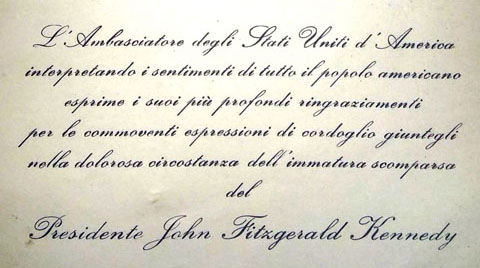 L'Ambasciatore degli Stati Uniti d'America
interpretando i sentimenti di tutto il popolo americano
esprime i suoi più profondi ringraziamenti
per le commoventi espressioni di cordoglio giuntegli
nella dolorosa circostanza dell'immatura scomparsa
del
Presidente John Fitzgerald Kennedy